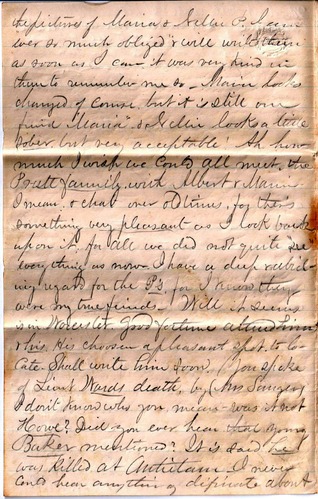 the pictures of Maria & Nellie P. I am
ever so much obliged & will write them
as soon as I can it was very kind in
them to remember me so - Maria looks
changed of course, but it is still our
friend "Maria" & Nellie looks a little
sober but very acceptable! Ah how
much I wish we could all meet, the
Pratt family with Albert & Maria
I mean & chat over old times, for there's
something very pleasant as I look back
upon it for all we did not quite see
everything as now - I have a deep
regard for the P's for I know they
were my true friends - Will it seems
is in Worcester Good fortune attend him
& his. He's chosen a pleasant spot to lo-
cate. Shall write him soon. (You spoke
of Lieut Wards death, by (Mrs
I don't know who you mean - was it not
Howe? Did you ever hear that young
Baker mentioned? It is said he
was killed at Antietam I never
could hear anything definate about